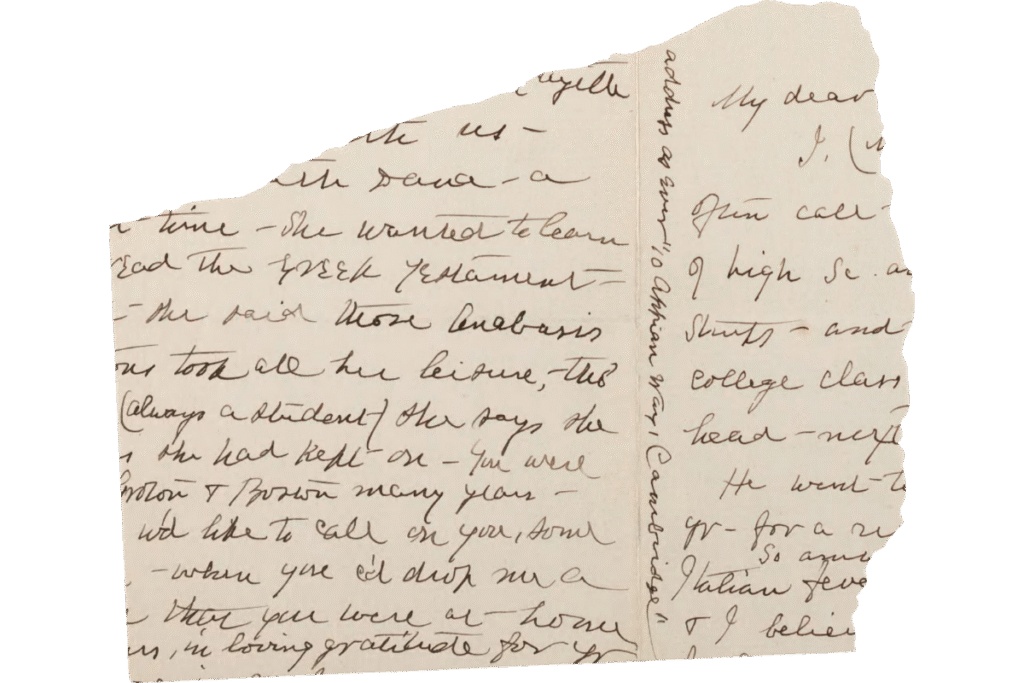 us -
Dana - a
time - She wanted to learn
read the Greek Testament -
- she said those Anabasis
took all her leisure, - tho'
(always a student) she says she
she had kept on - You were
Groton & Boston many years -
w'd like to call on you, some
- when you c'd drop me a
that you were at - home
in loving gratitude for yr
address as ever "10 Appian Way, Cambridge"
My dear
I, (
often call -
of high Sc. an
- and
college class
head - next
He went to
yr - for a
So
Italian feve
& I believ